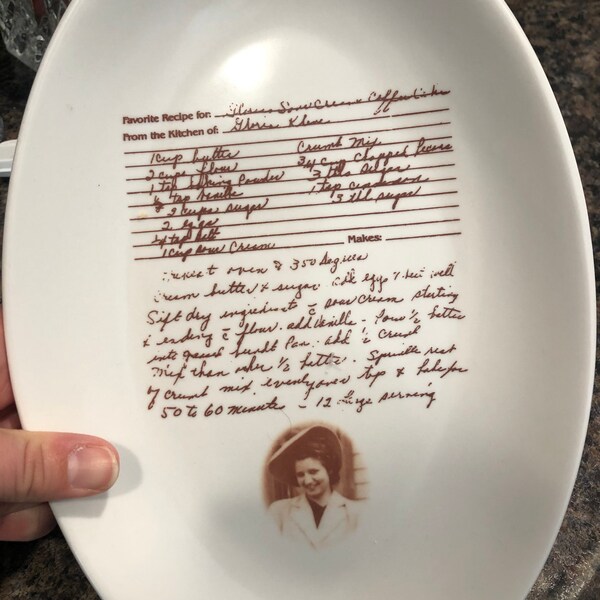 Favorite Recipe for: Glorias Sour Cream Coffee Cake
From the Kitchen of: Gloria Kline
1 cup butter Crumb Mix
2 cups flour 3/4 cup chopped Pecans
1 tsp baking Powder 3 tbls Sugar
1/2 tsp vanilla 1 tsp cinnamon
2 cups sugar 3 tbl sugar
2 eggs
1/4 tsp salt
1 cup sour Cream Makes:
Preheat oven @ 350 degrees
Cream butter & sugar add eggs & beat well
Sift dry ingredients c̄ sour cream starting
& ending c̄ flour. add Vanilla - Pour 1/2 batter
into greased bundt Pan. add 1/2 Crumb
Mix than other 1/2 batter. Sprinkle rest
of crumb mix evenly over top & bake for
50 to 60 minutes - 12 large serving